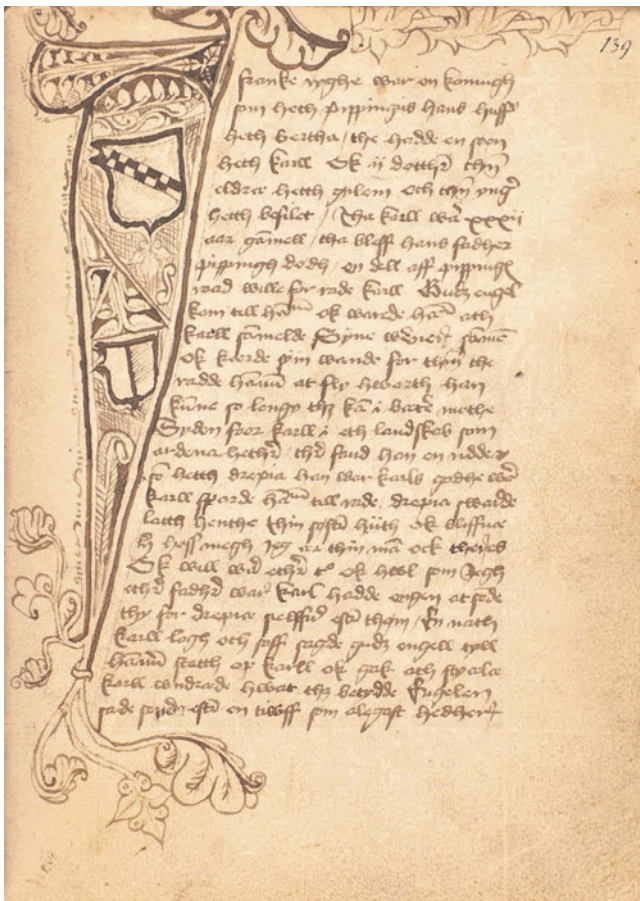 139
I
franke righe war en konnigh
som heth pippingus hans husf
heth bertha / the hadde en son
heth karll Ok ij dotthr thn
eldræ hetth gylem och thn yngr
hetth besilet / Tha karll war xxxij
aar gamell / tha bleff hans fadher
pippingh dodh / en dell aff pippings
raad wille for rade karll Gudz engel
kom till ham ok warede ham ath
karll samelde Syne wener samen
ok kerde syn wande for thm the
radde hanum at fly hworth han
kune so lenge thz kan i bætr methe
Syden foor karll i eth landskab som
ardena hethr / thr fand han en ridder
so hetth drepia han war karls godhe wen
karll sporde hanum till rade / drepia swarde
latth henthe thin systr hiith ok bliffue
hoss megh Jeg er thin man ock theres
Ok will wid ethr to ok hwl som Jegh
ethr fadhr war karl hadde engen at sode
thy for drepia selffuer efftr them / En nath
karll logh och soff sagde gudz engell tyll
hanum statth op karll ok gak ath styæle
karll wndrade hwat thz betydde Engelen
sade send efftr en tiwff som alegast hedher